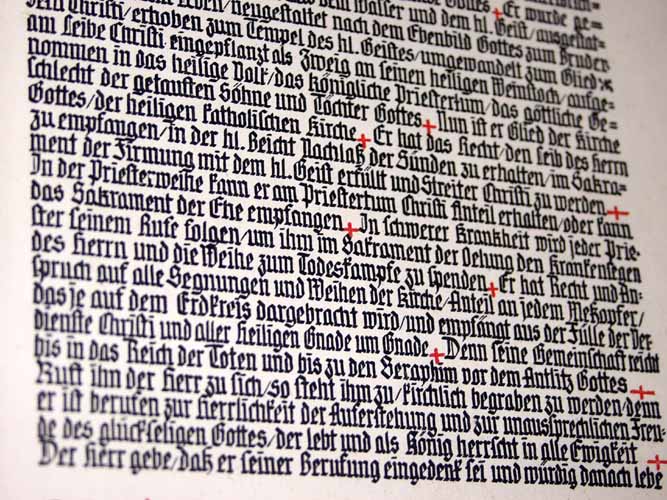 dem Walser und dem hl. Geist/ausgestat=
Leben/neugestaltet nach dem Ebenbild Gottes zum Bruder
Christi/erhoben zum Tempel des hl. Geistes/umgewandelt zum Glied
am Leibe Christi eingepflanzt als Zweig an seinen heiligen Weinstock/aufge=
nommen in das heilige Volk/das königliche Priestertum/das göttliche Ge=
schlecht der getauften Söhne und Töchter Gottes + Nun ist er Glied der Kirche
Gottes/der heiligen katholischen Kirche + Er hat das Recht/den Leib des Herrn
zu empfangen/in der hl. Beicht Nachlaß der Sünden zu erhalten/im Sakra=
ment der Firmung mit dem hl. Geist erfüllt und Streiter Christi zu werden +
In der Priesterweihe kann er am Priestertum Christi Anteil erhalten/oder kann
das Sakrament der Ehe empfangen + In schwerer Krankheit wird jeder Prie=
ster seinem Rufe folgen/um ihm im Sakrament der Oelung den Krankensegen
des Herrn und die Weihe zum Todeskampfe zu spenden + Er hat Recht und An=
spruch auf alle Segnungen und Weihen der Kirche/Anteil an jedem Meßopfer/
das je auf dem Erdkreis dargebracht wird/und empfängt aus der Fülle der Ver=
dienste Christi und aller Heiligen Gnade um Gnade + Denn seine Gemeinschaft reicht
bis in das Reich der Toten und bis zu den Seraphim vor dem Antlitz Gottes +
Ruft ihn der Herr zu sich/so steht ihm zu/kirchlich begraben zu werden/denn
er ist berufen zur Herrlichkeit der Auferstehung und zur unaussprechlichen Freu=
de des glückseligen Gottes/der lebt und als König herrscht in alle Ewigkeit +
Der Herr gebe/daß er seiner Berufung eingedenk sei und würdig danach lebe